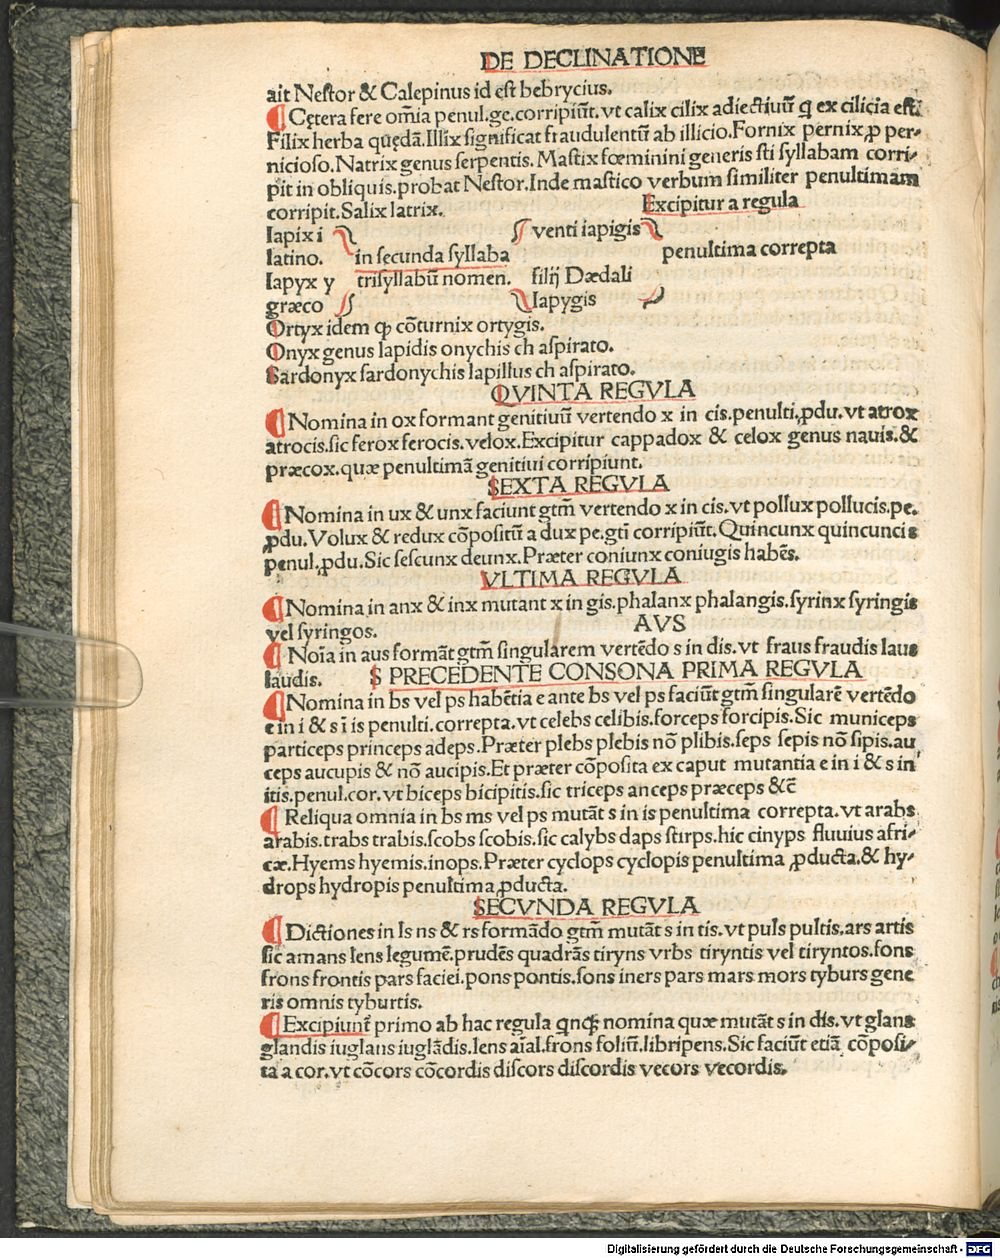 DE DECLINATIONE
ait Neſtor & Calepinus id eſt bebrycius.
¶ Cętera fere om̄ia penul.ge.corripiūt. vt calix cilix adiectiuū ꝙ ex cilicia eſt.
Filix herba quędā.Illix ſignificat fraudulentū ab illicio.Fornix pernix ꝓ per⸗
nicioſo.Natrix genus ſerpentis. Maſtix fœminini generis ſti ſyllabam corri⸗
pit in obliquis.probat Neſtor.Inde maſtico verbum ſimiliter penultimam
corripit.Salix latrix.
Excipitur a regula
Iapix i
latino.
Iapyx y
græco
in ſecunda ſyllaba
triſyllabū nomen.
venti iapigis
filij Dædali
Iapygis
penultima correpta
Ortyx idem ꝙ cōturnix ortygis.
Onyx genus lapidis onychis ch aſpirato.
Sardonyx ſardonychis lapillus ch aſpirato.
QVINTA REGVLA
¶ Nomina in ox formant genitiuū vertendo x in cis.penulti.ꝓdu. vt atrox
atrocis.ſic ferox ferocis.velox.Excipitur cappadox & celox genus nauis.&
præcox.quæ penultimā genitiui corripiunt.
SEXTA REGVLA
¶ Nomina in ux & unx faciunt gtm̄ vertendo x in cis.vt pollux pollucis.pe.
ꝓdu.Volux & redux cōpoſitū a dux pe.gti corripiūt.Quincunx quincuncis
penul.ꝓdu.Sic ſeſcunx deunx.Præter coniunx coniugis habēs.
VLTIMA REGVLA
¶ Nomina in anx & inx mutant x in gis.phalanx phalangis.ſyrinx ſyringis
vel ſyringos.
AVS
¶ Noīa in aus formāt gtm̄ ſingularem vertēdo s in dis.vt fraus fraudis laus
laudis.
S PRECEDENTE CONSONA PRIMA REGVLA
¶ Nomina in bs vel ps habētia e ante bs vel ps faciūt gtm̄ ſingularē vertēdo
e in i & s ī is penulti.correpta.vt celebs celibis.forceps forcipis.Sic municeps
particeps princeps adeps.Præter plebs plebis nō plibis.ſeps ſepis nō ſipis.au
ceps aucupis & nō aucipis.Et præter cōpoſita ex caput mutantia e in i & s in
itis.penul.cor.vt biceps bicipitis.ſic triceps anceps præceps &c̄
¶ Reliqua omnia in bs ms vel ps mutāt s in is penultima correpta.vt arabs
arabis.trabs trabis.ſcobs ſcobis.ſic calybs daps ſtirps.hic cinyps fluuius afri⸗
cæ.Hyems hyemis.inops.Præter cyclops cyclopis penultima ꝓducta.& hy⸗
drops hydropis penultima ꝓducta.
SECVNDA REGVLA
¶ Dictiones in ls ns & rs formādo gtm̄ mutāt s in tis.vt puls pultis.ars artis
ſic amans lens legumē.prudēs quadrās tiryns vrbs tiryntis vel tiryntos.fons
frons frontis pars faciei.pons pontis.ſons iners pars mars mors tyburs gene
ris omnis tyburtis.
¶ Excipiunt̄ primo ab hac regula qnꝗ nomina quæ mutāt s in dis.vt glans
glandis iuglans iuglādis.lens aīal.frons foliū.libripens.Sic faciūt etiā cōpoſi⸗
ta a cor.vt cōcors cōcordis diſcors diſcordis vecors vecordis.
Digitalisierung gefördert durch die Deutsche Forschungsgemeinschaft - DFG